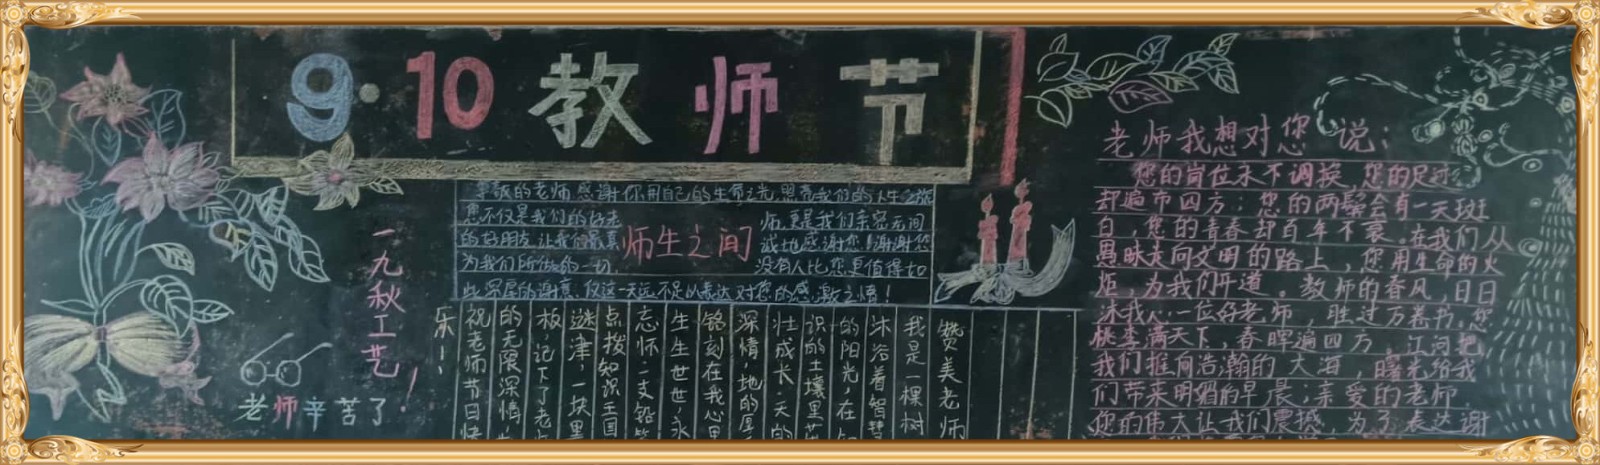 9·10 教师节
一九秋工艺！
老师辛苦了
敬的老师感谢你用自己的生命之光,照亮我们的人生之旅
您不仅是我们的好老 师,更是我们亲密无间
的好朋友让我们最真 师生之间 诚地感谢您!谢谢您
为我们所做的一切 没有人比您更值得如
此深厚的谢意.仅这一天远不足以表达对您的感激之情!
赞美老师
我是一棵树
沐浴着智慧
的阳光,在
识的土壤里茁
壮成长.天的
深情,地的厚
铭刻在我心里
生生世世,永
忘怀.一支铅笔
点拨知识王国
迷津,一块里
板,记下了老师
的无限深情
祝老师节日快
乐!
老师我想对您说:
您的岗位永不调换,您的足迹
却遍布四方;您的两鬓会有一天斑
白,您的青春却百年不衰.在我们从
愚昧走向文明的路上,您用生命的火
炬,为我们开道。教师的春风,日日
沐我心.一位好老师,胜过万卷书.您
桃李满天下,春晖遍四方.江河把
我们推向浩瀚的大海,曙光给我
们带来明媚的早晨;亲爱的老师
您的伟大让我们震撼,为了表达谢